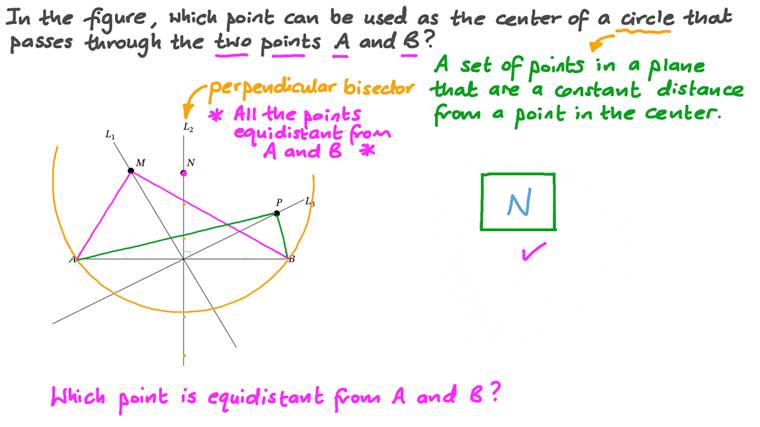 In the figure, which point can be used as the center of a circle that
passes through the two points A and B?
A set of points in a plane
that are a constant distance
from a point in the center.
perpendicular bisector
* All the points
equidistant from
A and B *
L1
L2
M
N
P
L3
A
B
N
Which point is equidistant from A and B?